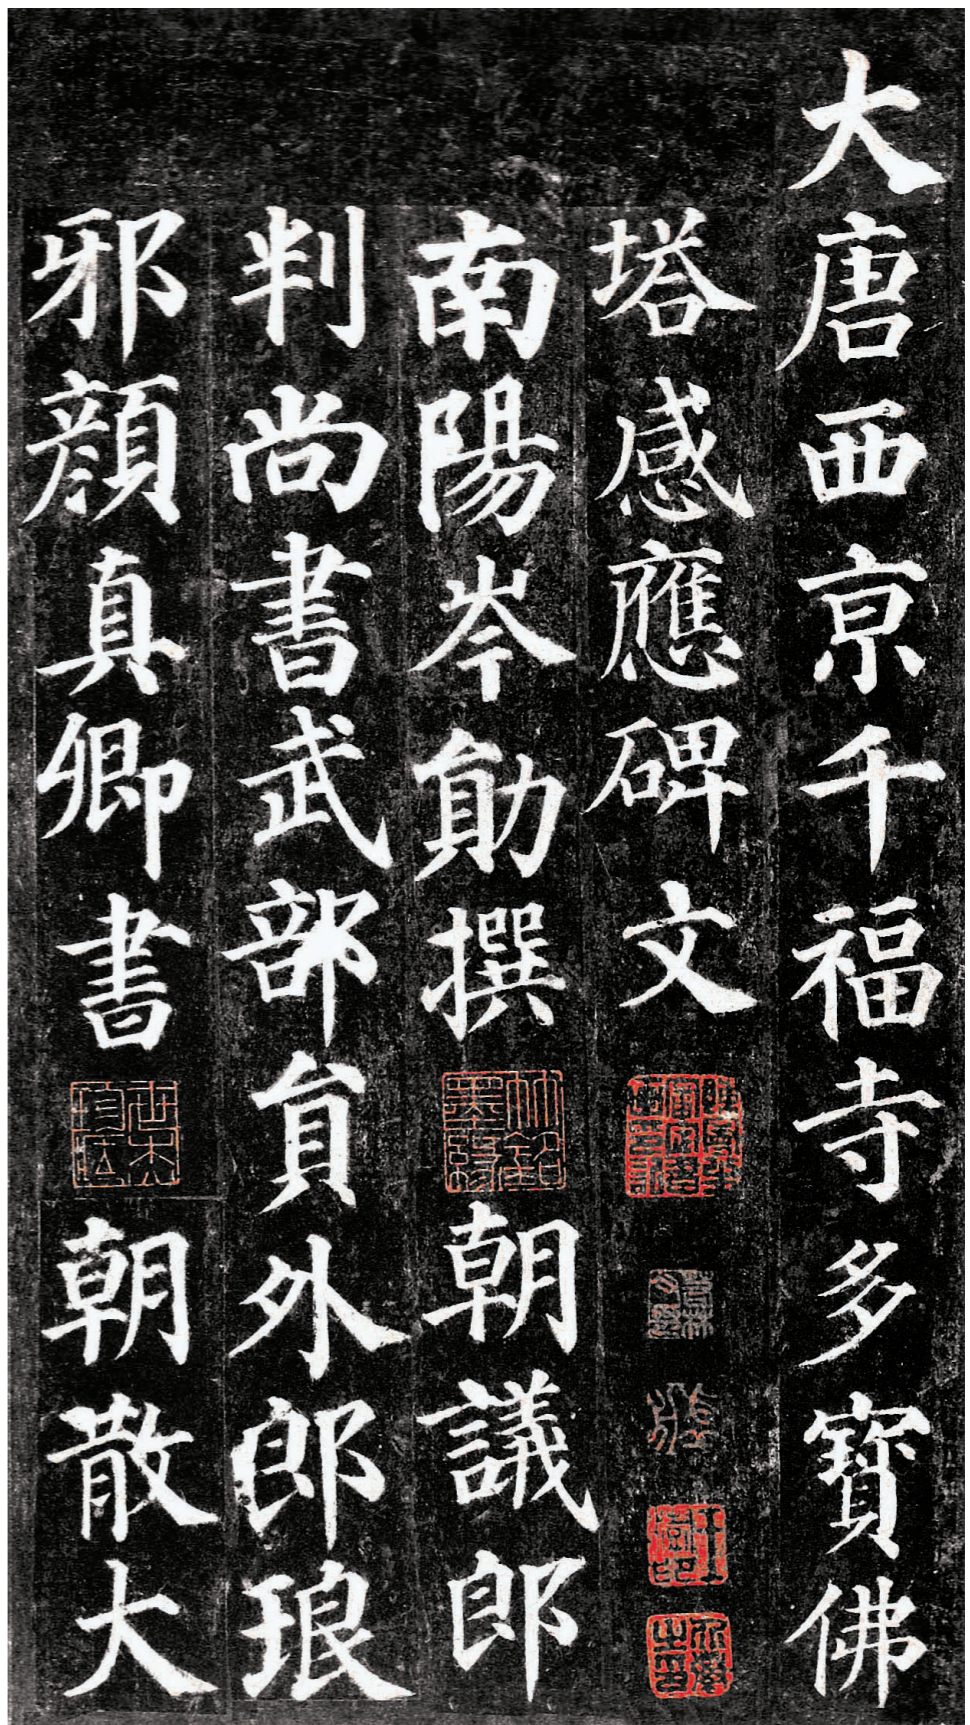 大唐西京千福寺多寶佛
塔感應碑文
南陽岑勛撰 朝議郎
判尚書武部員外郎琅
邪顏真卿書 朝散大